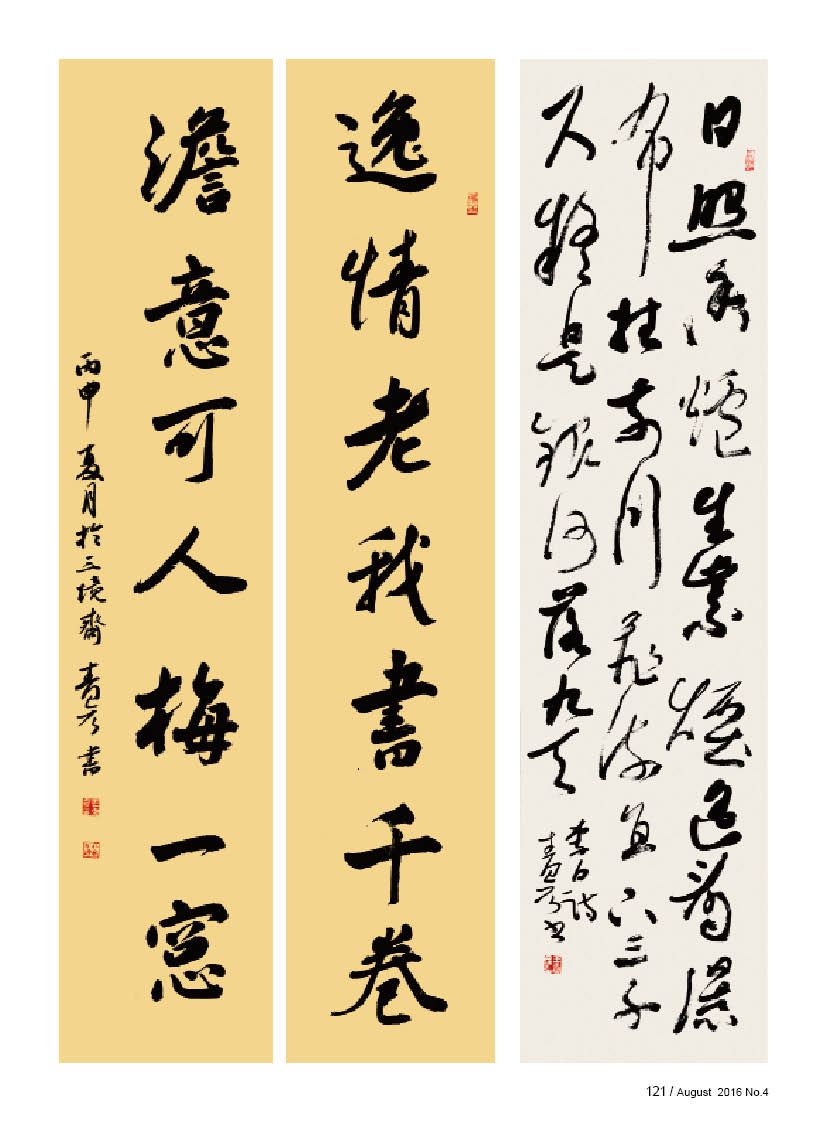 日照香爐生紫煙遙看瀑
布挂前川飛流直下三千
尺疑是銀河落九天
李白詩
逸情老我書千卷
澹意可人梅一窓
丙申夏月於三境齋 書
121 / August 2016 No.4